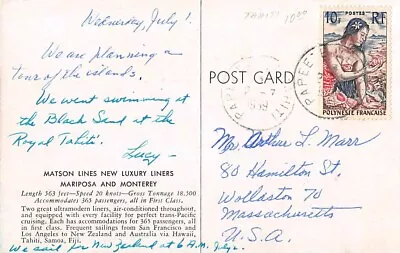 Wednesday, July 1.
We are planning a
tour of the islands.
We went swimming at
the Black Sand at the
Royal Tahiti.
Lucy—
MATSON LINES NEW LUXURY LINERS
MARIPOSA AND MONTEREY
Length 563 feet—Speed 20 knots—Gross Tonnage 18,500
Accommodates 365 passengers, all in First Class.
Two great ultramodern liners, air-conditioned throughout,
and equipped with every facility for perfect trans-Pacific
cruising. Each has accommodations for 365 passengers,
all in first class. Frequent sailings from San Francisco and
Los Angeles to New Zealand and Australia via Hawaii,
Tahiti, Samoa, Fiji.
We sail for New Zealand at 6 A.M. July
TAHITI
POST CARD
PAPEETE
TAHITI
1959
10F POSTES RF
POLYNESIE FRANÇAISE
Mr. Arthur L. Marr
80 Hamilton St.
Wollaston 70
Massachusetts
U.S.A.